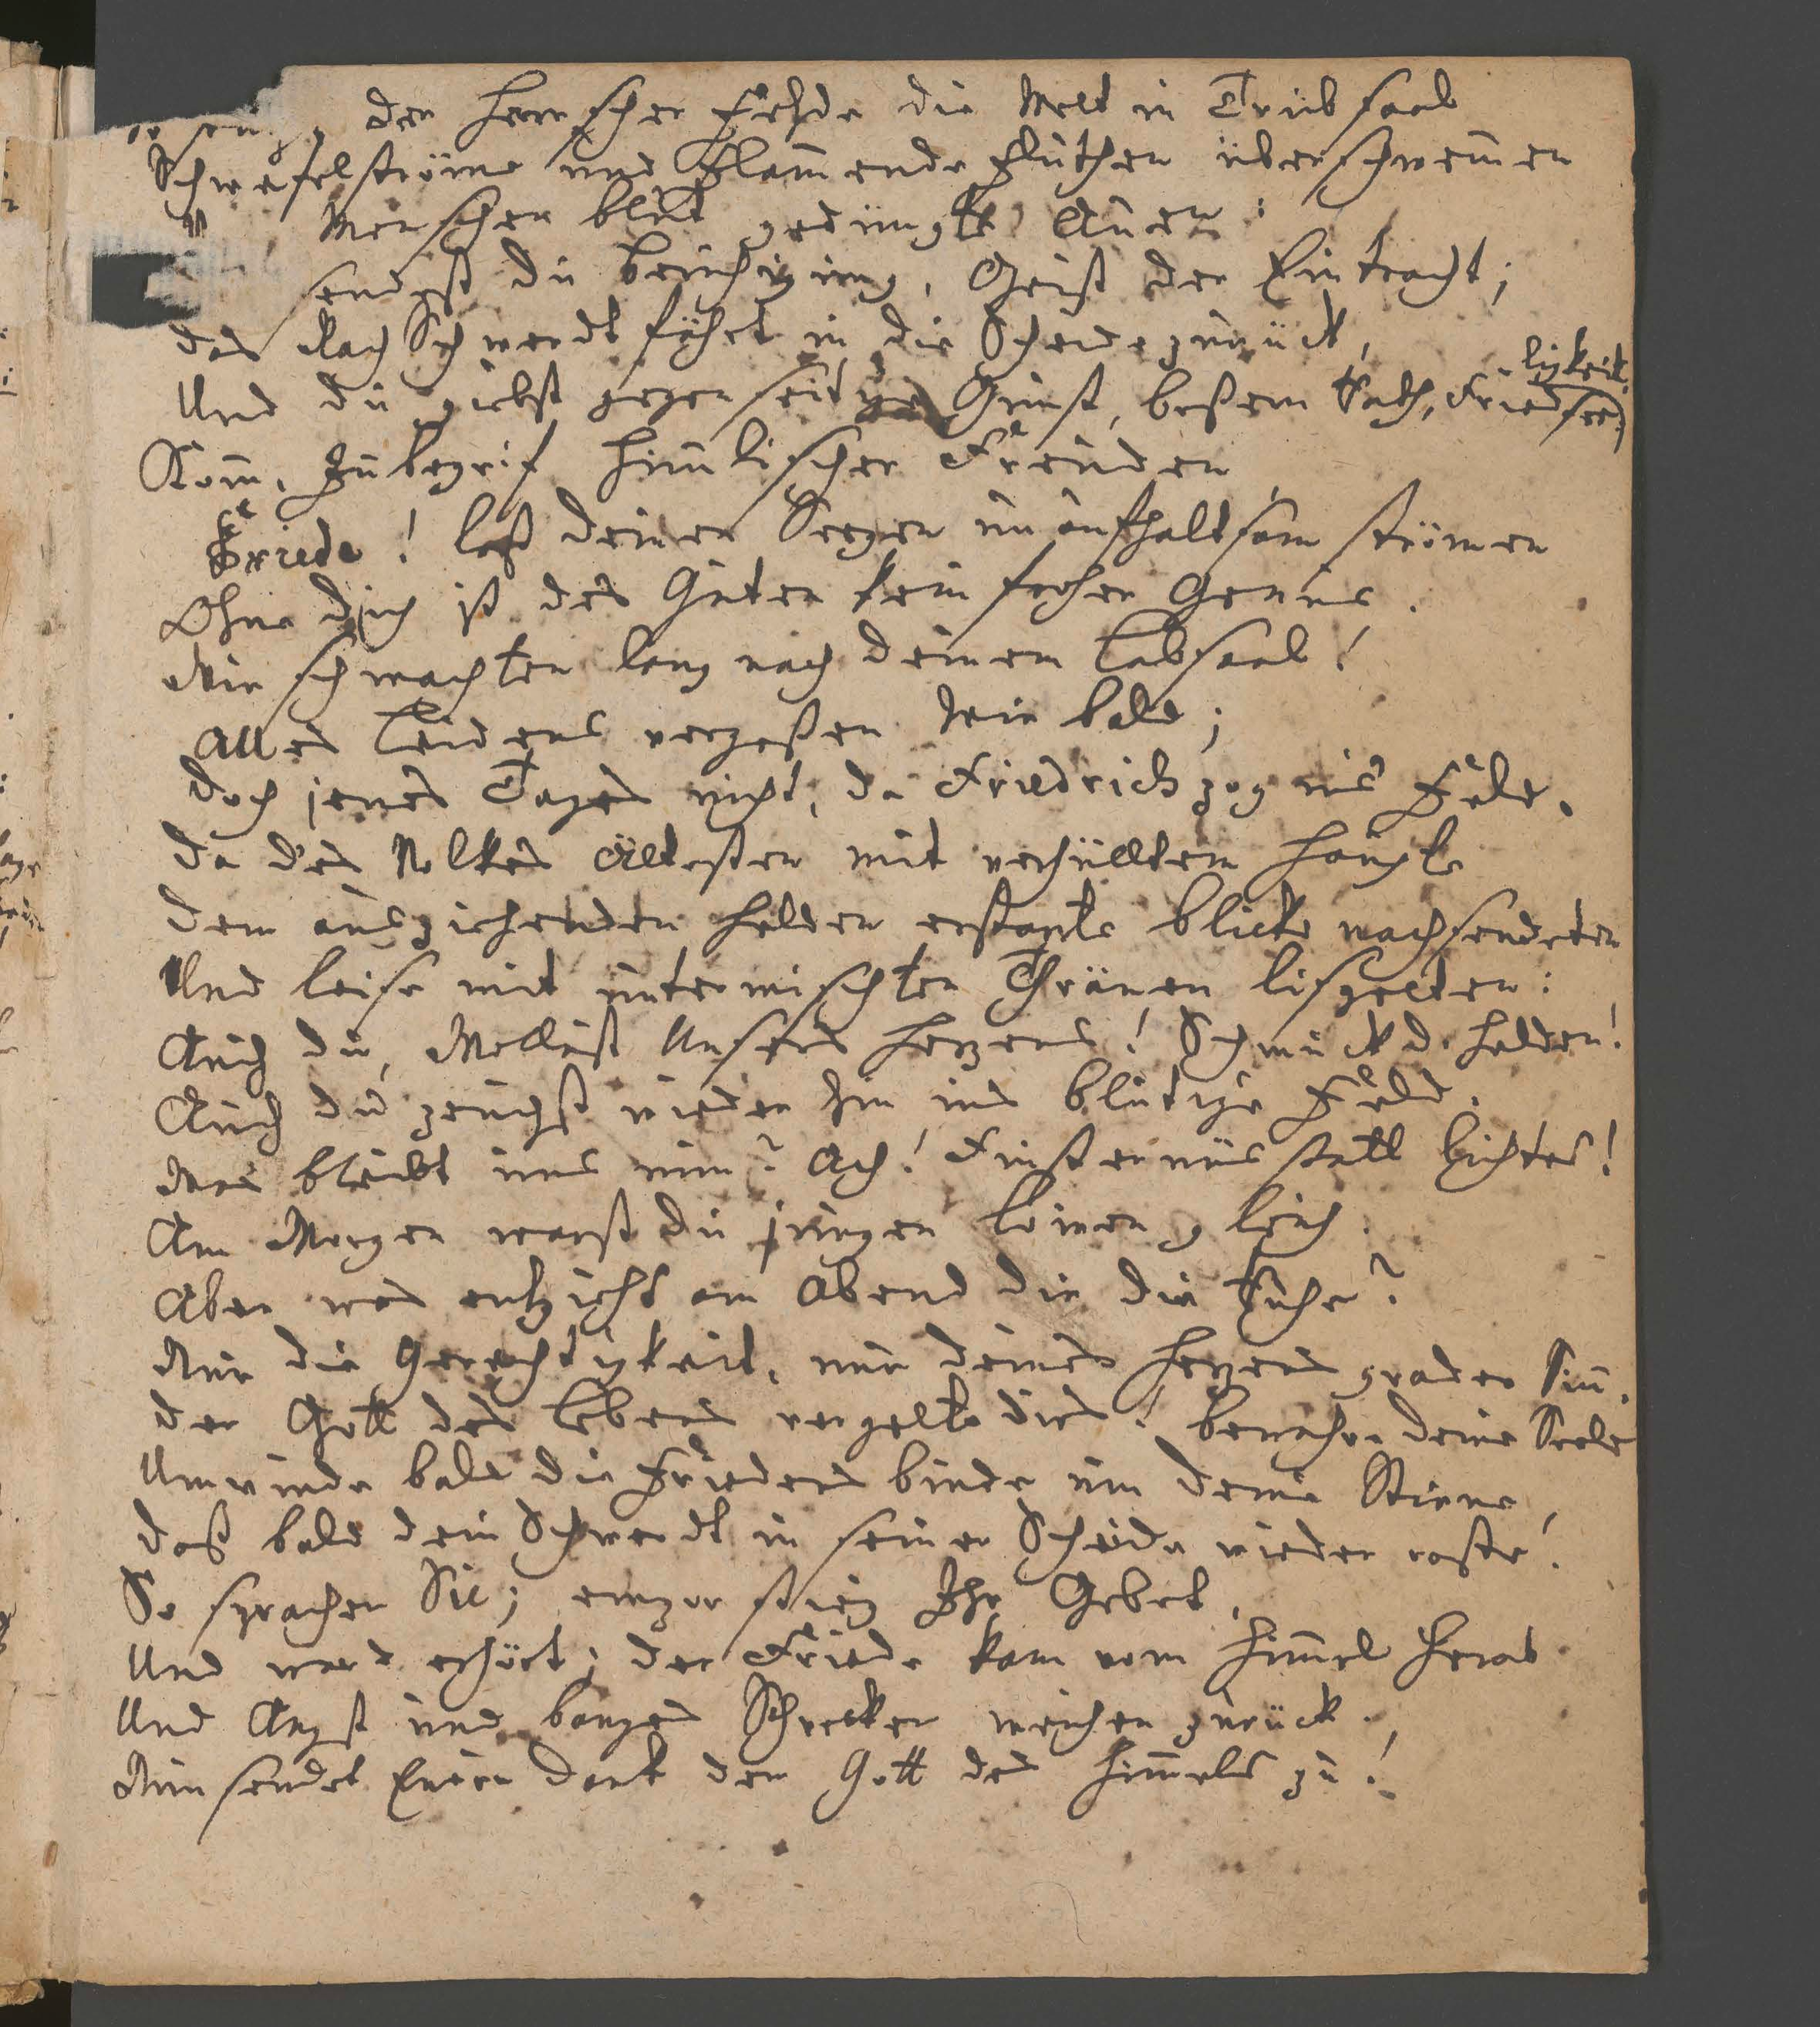 der Herrscher Fehde die Welt in Trübsaal
Schwefelströme und Flam̄ende Fluthen überschwem̄en
Menschen blut gedüngte Auen:
sendest du beruhigung, Geist der Eintracht;
das Rach Schwerdt fährt in die Scheide zurück,
Und du giebst gegenseitge Gunst, beßern Rath, Friedseeligkeit.
Kom̄, Inbegrif him̄lischer Freuden
Friede! laß deinen Seegen unaufhaltsam strömen
Ohne dich ist des Guten kein froher Genus.
Wir schmachten lang nach deinem Labsaal!
Alles Leidens vergeßen wir bald;
doch jenes Tages nicht, da Friedrich zog ins Feld.
da des Volkes Ältesten mit verhülltem Haupte
dem ausziehenden Helden erstarrte Blicke nachsendeten
Und leise mit untermischten Thränen lispelten:
Auch du, Wollust Unsers Herzens! Schmuck d. Helden!
Auch du zeuchst wieder hin ins blutige Feld.
Was bleibt uns nun? Ach! Finsternüs statt Lichtes!
Am Morgen warst du jungen Löwen gleich
Aber was entzieht am Abend dir die Ruhe?
Nur die Gerechtigkeit, nur deines Herzens grader Sin̄.
der Gott des Lebens vergelte dirs! bewahre deine Seele
Umwinde bald die Friedens binde um deine Stirne,
daß bald dein Schwerdt in seiner Scheide wieder raste!
So sprachen Sie; empor stieg Ihr Gebet,
Und ward erhört; der Friede kam vom Him̄el herab
Und Angst und banges Schrecken weichen zurück.
Nun sendet Euren Dank dem Gott des Him̄els zu!